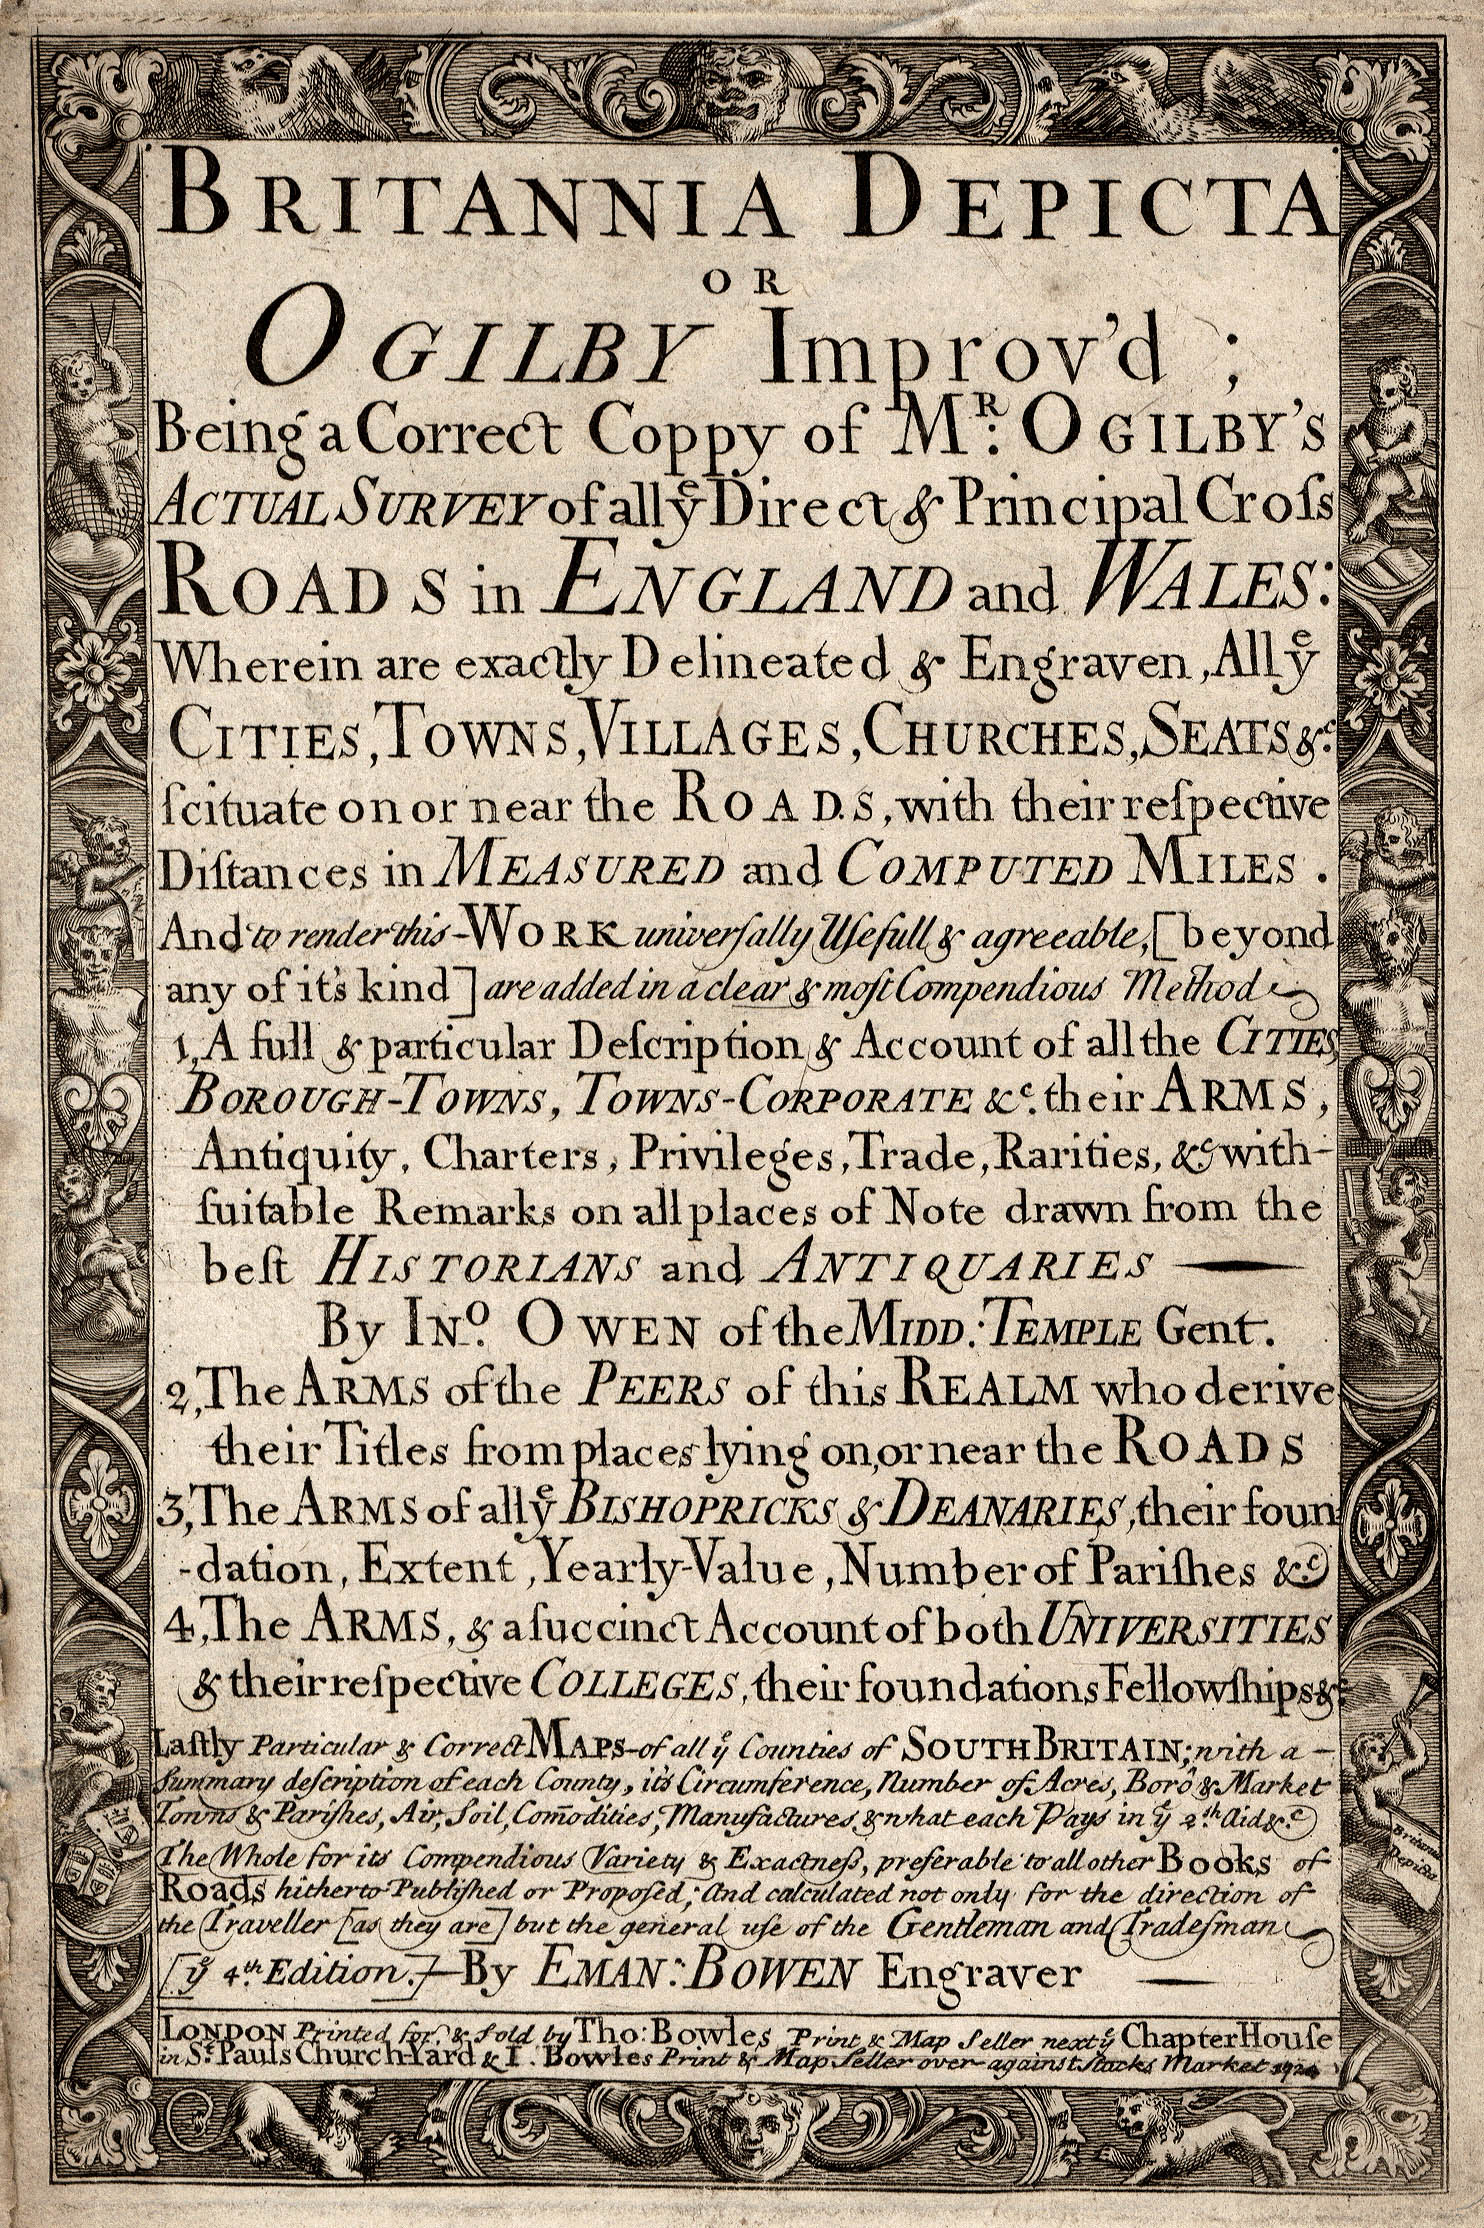 BRITANNIA DEPICTA
OR
OGILBY Improv'd ;
Being a Correct Coppy of Mʳ: OGILBY'S
ACTUAL SURVEY of all yᵉ Direct & Principal Croſs
ROADS in ENGLAND and WALES:
Wherein are exactly Delineated & Engraven, All yᵉ
CITIES, TOWNS, VILLAGES, CHURCHES, SEATS &ᶜ.
ſcituate on or near the ROADS, with their reſpective
Diſtances in MEASURED and COMPUTED MILES .
And to render this - WORK univerſally Uſefull & agreeable, [beyond
any of it's kind] are added in a clear & moſt Compendious Method
1, A full & particular Deſcription & Account of all the CITIES
BOROUGH-TOWNS, TOWNS-CORPORATE &ᶜ. their ARMS,
Antiquity, Charters, Privileges, Trade, Rarities, &ᶜ with-
ſuitable Remarks on all places of Note drawn from the
beſt HISTORIANS and ANTIQUARIES —
By INᵒ. OWEN of the MIDD: TEMPLE Gent.
2, The ARMS of the PEERS of this REALM who derive
their Titles from places lying on, or near the ROADS
3, The ARMS of all yᵉ BISHOPRICKS & DEANARIES, their foun
-dation, Extent, Yearly-Value, Number of Pariſhes &ᶜ.
4, The ARMS, & a ſuccinct Account of both UNIVERSITIES
& their reſpective COLLEGES, their foundations Fellowſhips &ᶜ
Laſtly Particular & Correct MAPS - of all yᵉ Counties of SOUTH BRITAIN; with a -
Summary deſcription of each County, it's Circumference, Number of Acres, Borô & Market
Towns & Pariſhes, Air, Soil, Com̄odities, Manufactures, & what each Pays in yᵉ 2ᵗʰ Aid &ᶜ
The Whole for its Compendious Variety & Exactneſs, preferable to all other BOOKS of
ROADS hitherto Publiſhed or Propoſed; And calculated not only for the direction of
the Traveller [as they are] but the general uſe of the Gentleman and Tradeſman
[yᵉ 4ᵗʰ Edition.] — By EMAN: BOWEN Engraver —
LONDON Printed for, & Sold by Tho: Bowles Print & Map Seller next yᵉ Chapter Houſe
in Sᵗ. Pauls Church-Yard & I. Bowles Print & Map Seller over-against Stocks Market
Britannia
Depicta